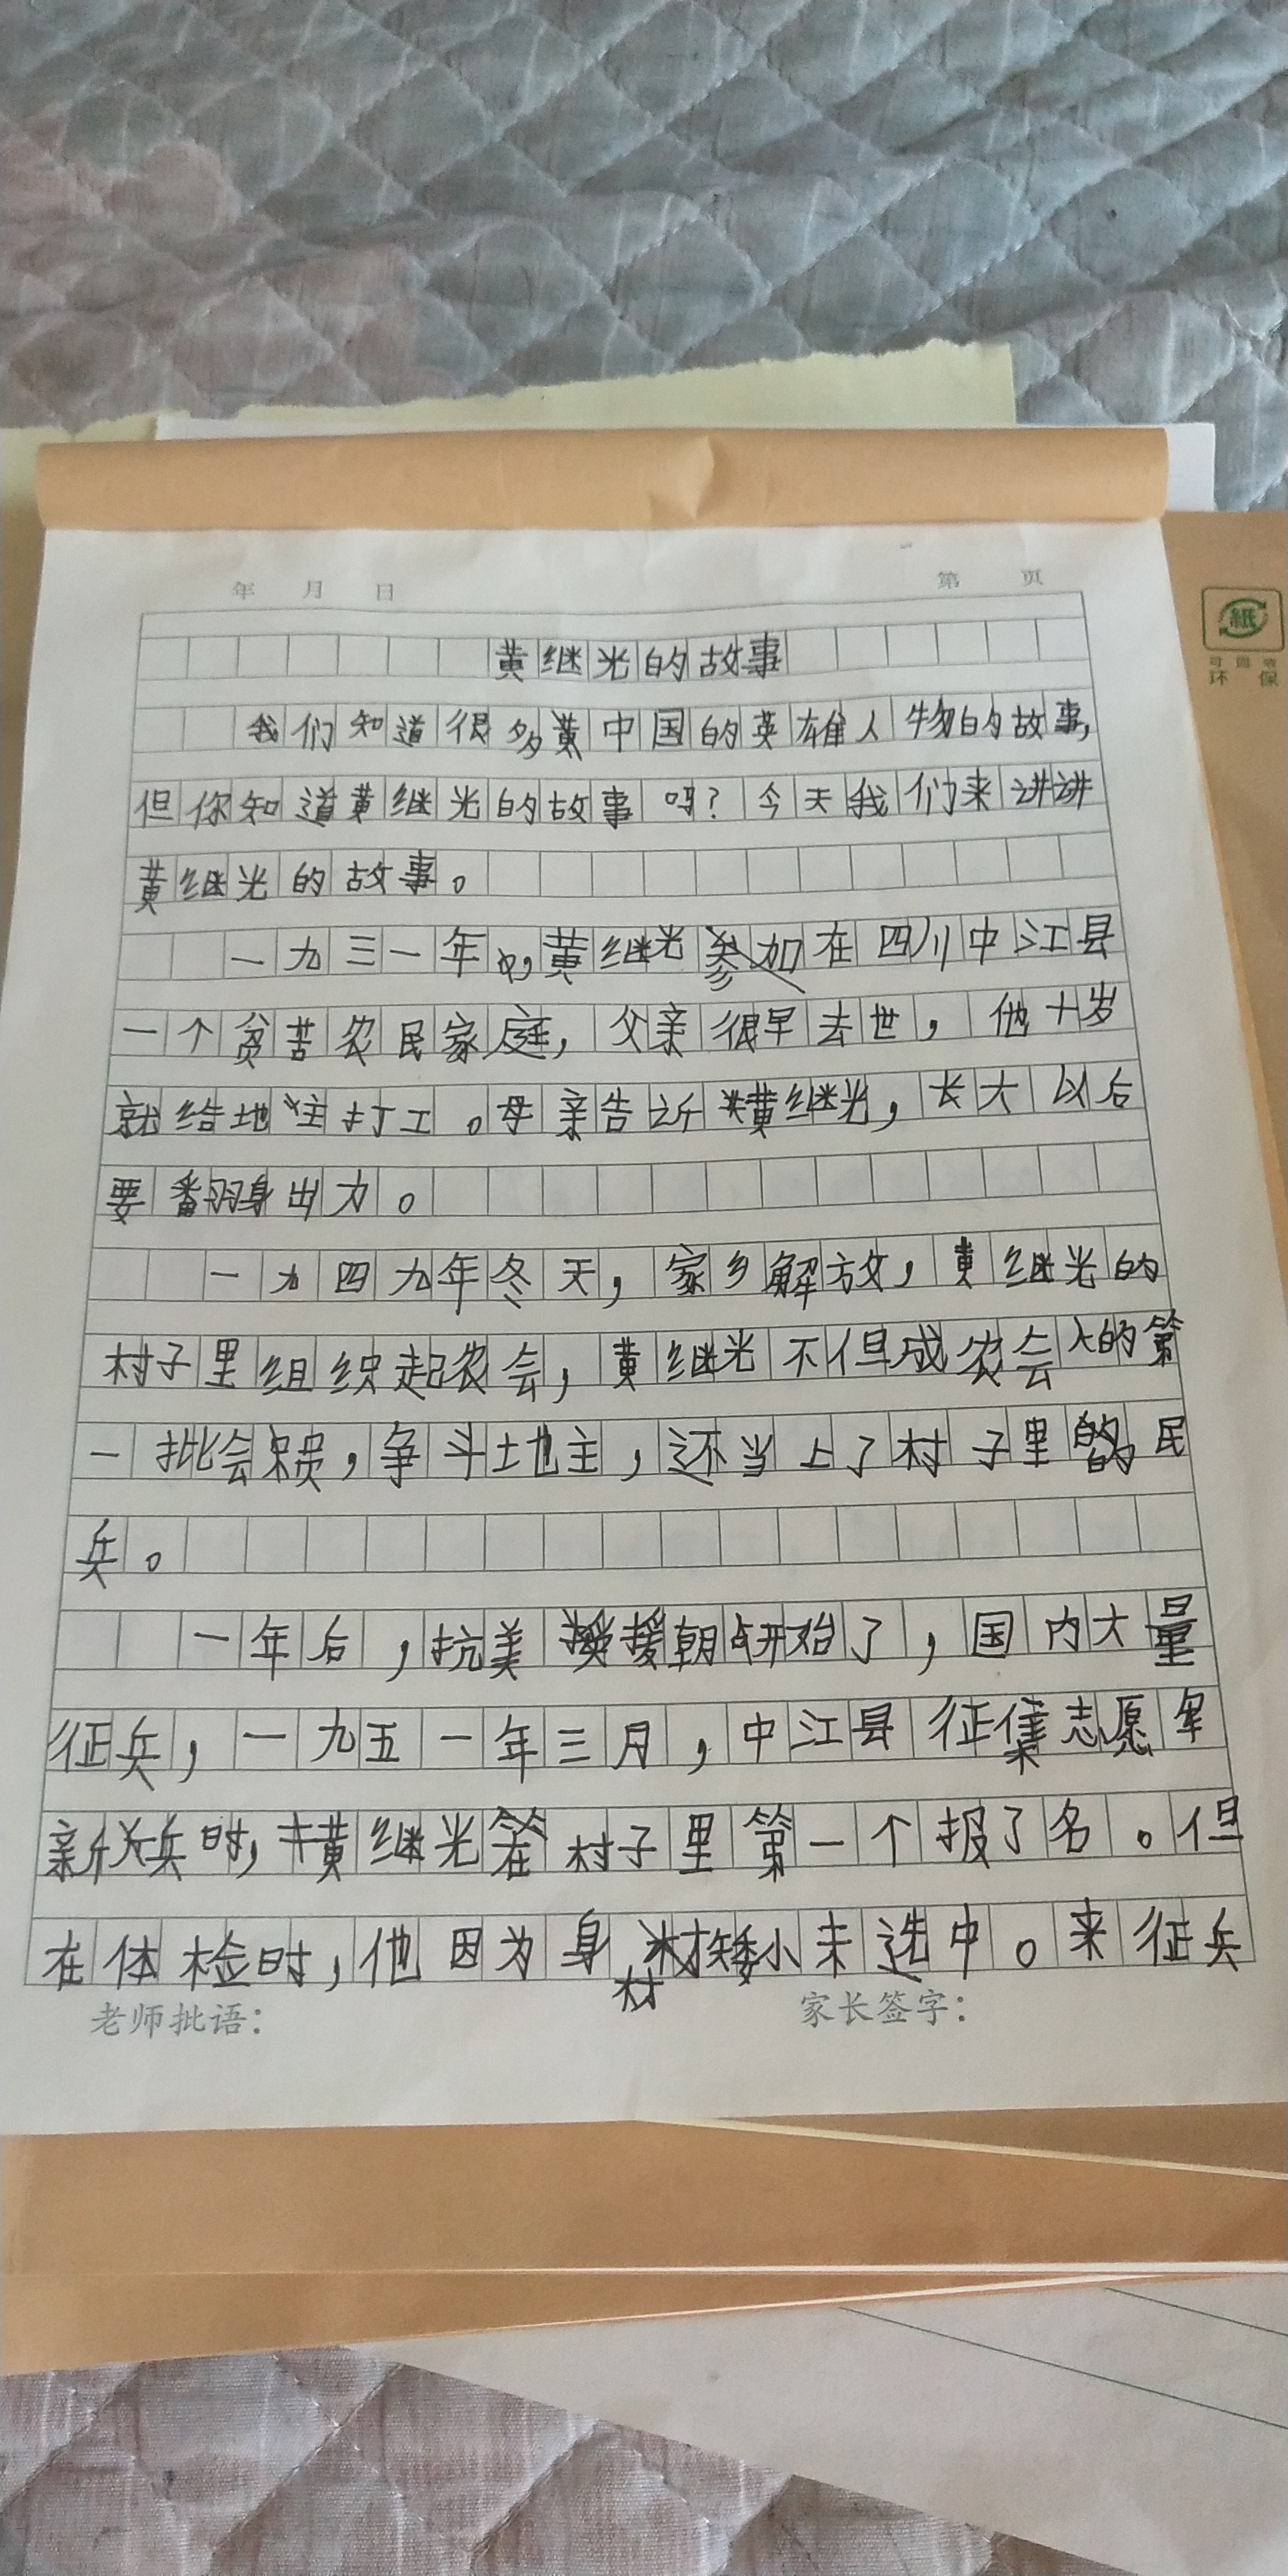 年 月 日 第 页
紙
可回收
环保
黄继光的故事
我们知道很多中国的英雄人物的故事,
但你知道黄继光的故事吗?今天我们来讲讲
黄继光的故事。
一九三一年,黄继光在四川中江县
一个贫苦农民家庭,父亲很早去世,他十岁
就给地主打工。母亲告诉黄继光,长大以后
要翻身出力。
一九四九年冬天,家乡解放,黄继光的
村子里组织起农会,黄继光不但成农会的第
一批会员,争斗地主,还当上了村子里的民
兵。
一年后,抗美援朝战开始了,国内大量
征兵,一九五一年三月,中江县征集志愿军
新兵时,黄继光在村子里第一个报了名。但
在体检时,他因为身材矮小未选中。来征兵
老师批语: 家长签字: